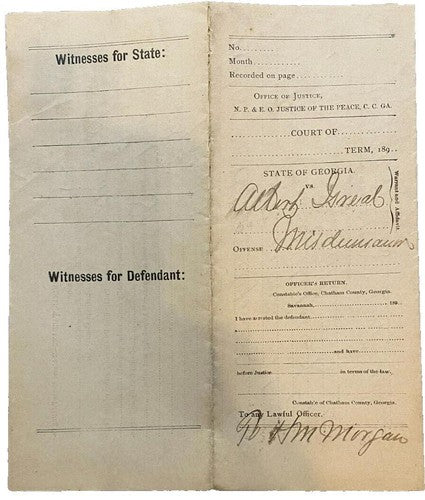 Witnesses for State:
Witnesses for Defendant:
No.
Month
Recorded on page
OFFICE OF JUSTICE,
N. P. & E. O. JUSTICE OF THE PEACE, C. C. GA.
COURT OF
TERM, 189
STATE OF GEORGIA
VS.
Albert Isreal
Warrant and Affidavit
OFFENSE Misdemeanor
OFFICER'S RETURN.
Constable's Office, Chatham County, Georgia.
Savannah, 189
I have arrested the defendant
and have
before Justice in terms of the law,
Constable of Chatham County, Georgia.
To any Lawful Officer.
Morgan